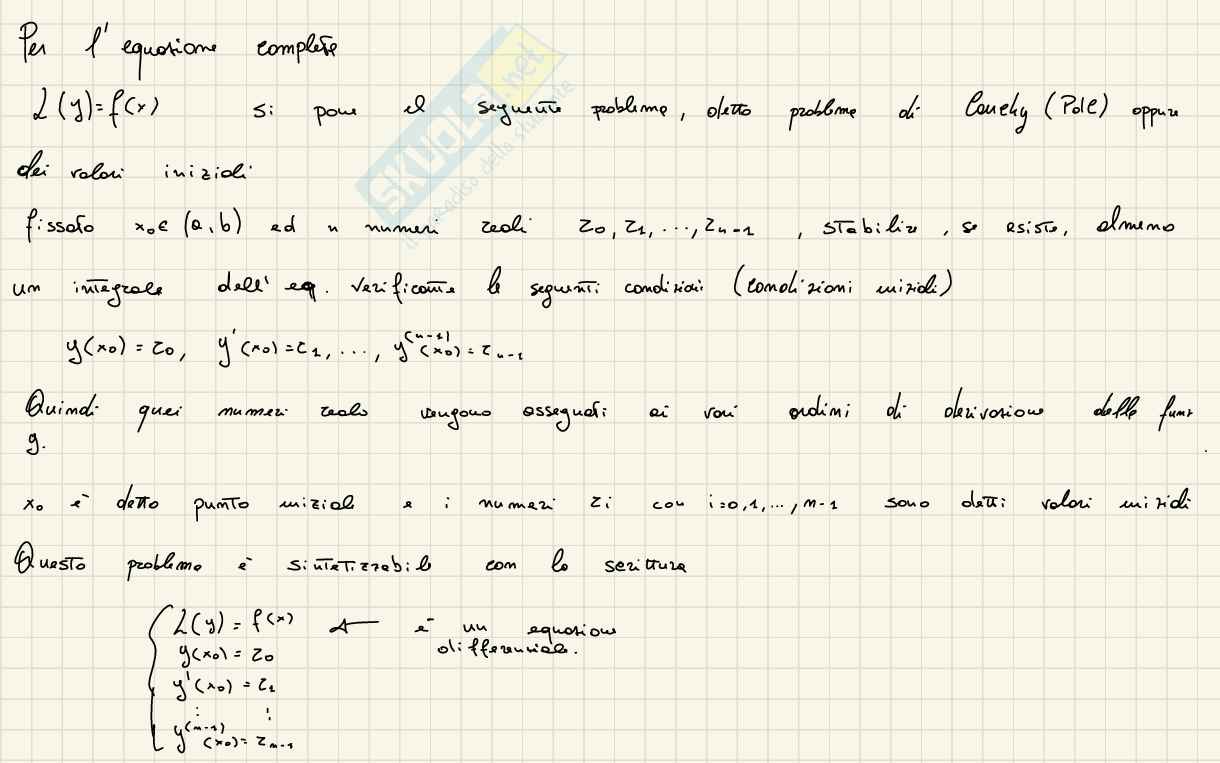 Per l'equazione completa
L(y)=f(x) si pone il seguente problema, detto problema di Cauchy (PdC) oppure
dei valori iniziali
fissato x₀∈(a,b) ed n numeri reali z₀,z₁,...,zₙ₋₁, stabilire, se esiste, almeno
un integrale dell'eq. verificante le seguenti condizioni (condizioni iniziali)
y(x₀)=z₀, y'(x₀)=z₁,..., y⁽ⁿ⁻¹⁾(x₀)=zₙ₋₁
Quindi quei numeri reali vengono assegnati ai vari ordini di derivazione della funz
y.
x₀ è detto punto iniziale e i numeri zi con i=0,1,...,n-1 sono detti valori iniziali
Questo problema è sintetizzabile con la scrittura
L(y)=f(x) ← è un equazione
differenziale.
y(x₀)=z₀
y'(x₀)=z₁
⋮ ⋮
y⁽ⁿ⁻¹⁾(x₀)=zₙ₋₁
SKUOLA.net
il paradiso dello studente